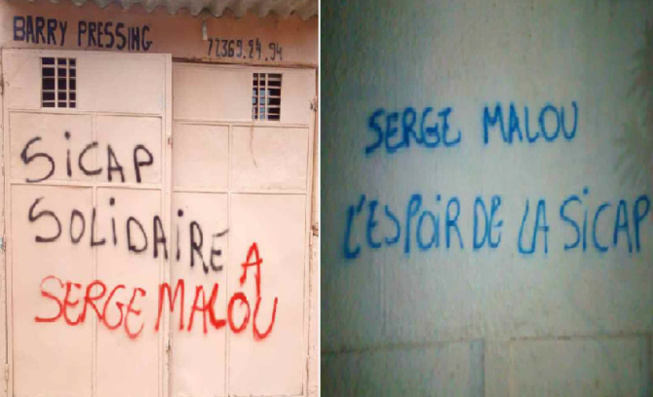 BARRY PRESSING
77369.24.94
SiCAP
SOLiDAiRE A
SERGE MALOU
SERGE MALOU
L'ESPOiR DE LA SiCAP